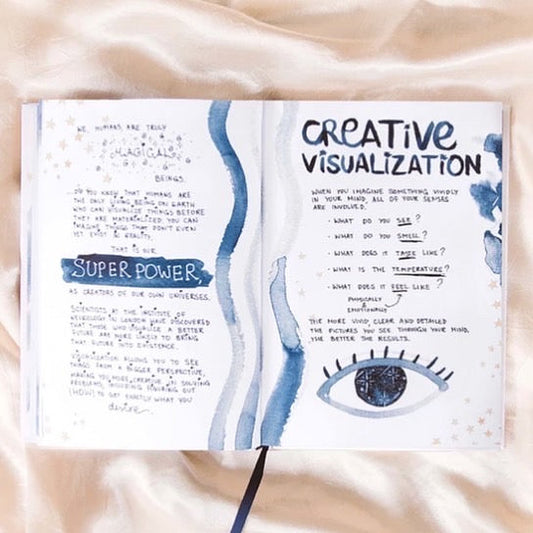 WE, HUMANS, ARE TRULY
MAGICAL
BEINGS.
DO YOU KNOW THAT HUMANS ARE
THE ONLY LIVING BEING ON EARTH
WHO CAN VISUALIZE THINGS BEFORE
THEY ARE MATERIALIZED. YOU CAN
IMAGINE THINGS THAT DON'T EVEN
YET EXIST IN REALITY.
THAT IS OUR
SUPER POWER,
AS CREATORS OF OUR OWN UNIVERSES.
SCIENTISTS IN THE INSTITUTE OF
NEUROLOGY IN LONDON HAVE DISCOVERED
THAT THOSE WHO VISUALIZE A BETTER
FUTURE ARE MORE LIKELY TO BRING
THAT FUTURE INTO EXISTENCE.
VISUALIZATION ALLOWS YOU TO SEE
THINGS FROM A BIGGER PERSPECTIVE,
MAKING YOU MORE CREATIVE IN SOLVING
PROBLEMS, INCLUDING FIGURING OUT
(HOW) TO GET EXACTLY WHAT YOU
desire.
CREATIVE
VISUALIZATION
WHEN YOU IMAGINE SOMETHING VIVIDLY
IN YOUR MIND, ALL OF YOUR SENSES
ARE INVOLVED.
• WHAT DO YOU SEE?
• WHAT DO YOU SMELL?
• WHAT DOES IT TASTE LIKE?
• WHAT IS THE TEMPERATURE?
• WHAT DOES IT FEEL LIKE?
PHYSICALLY &
EMOTIONALLY
THE MORE VIVID, CLEAR AND DETAILED
THE PICTURES YOU SEE THROUGH YOUR MIND,
THE BETTER THE RESULTS.